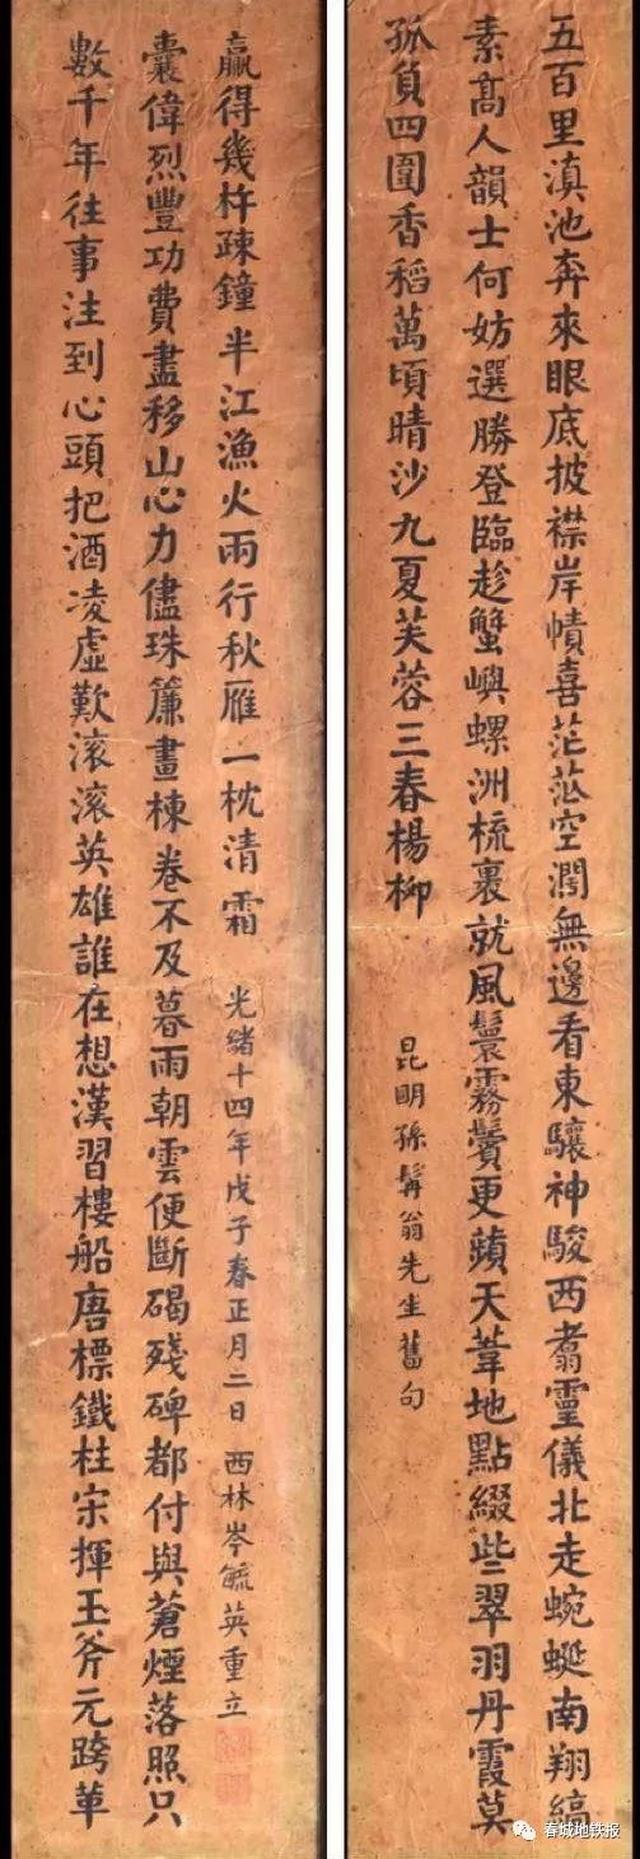 五百里滇池奔來眼底披襟岸幘喜茫茫空濶無邊看東驤神駿西翥靈儀北走蜿蜒南翔縞
素高人韻士何妨選勝登臨趁蟹嶼螺洲梳裹就風鬟霧鬢更蘋天葦地點綴些翠羽丹霞莫
孤負四圍香稻萬頃晴沙九夏芙蓉三春楊柳
昆明孫髯翁先生舊句
數千年往事注到心頭把酒凌虛歎滾滾英雄誰在想漢習樓船唐標鐵柱宋揮玉斧元跨革
囊偉烈豐功費盡移山心力儘珠簾畫棟卷不及暮雨朝雲便斷碣殘碑都付與蒼煙落照只
贏得幾杵疎鐘半江漁火兩行秋雁一枕清霜
光緒十四年戊子春正月二日 西林岑毓英重立
春城地铁报